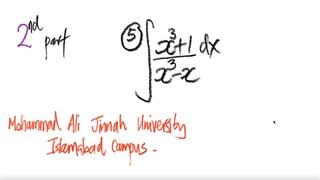 2nd part
⑤ ∫ x³+1 dx
x³-x
Mohammad Ali Jinnah University
Islamabad Campus -